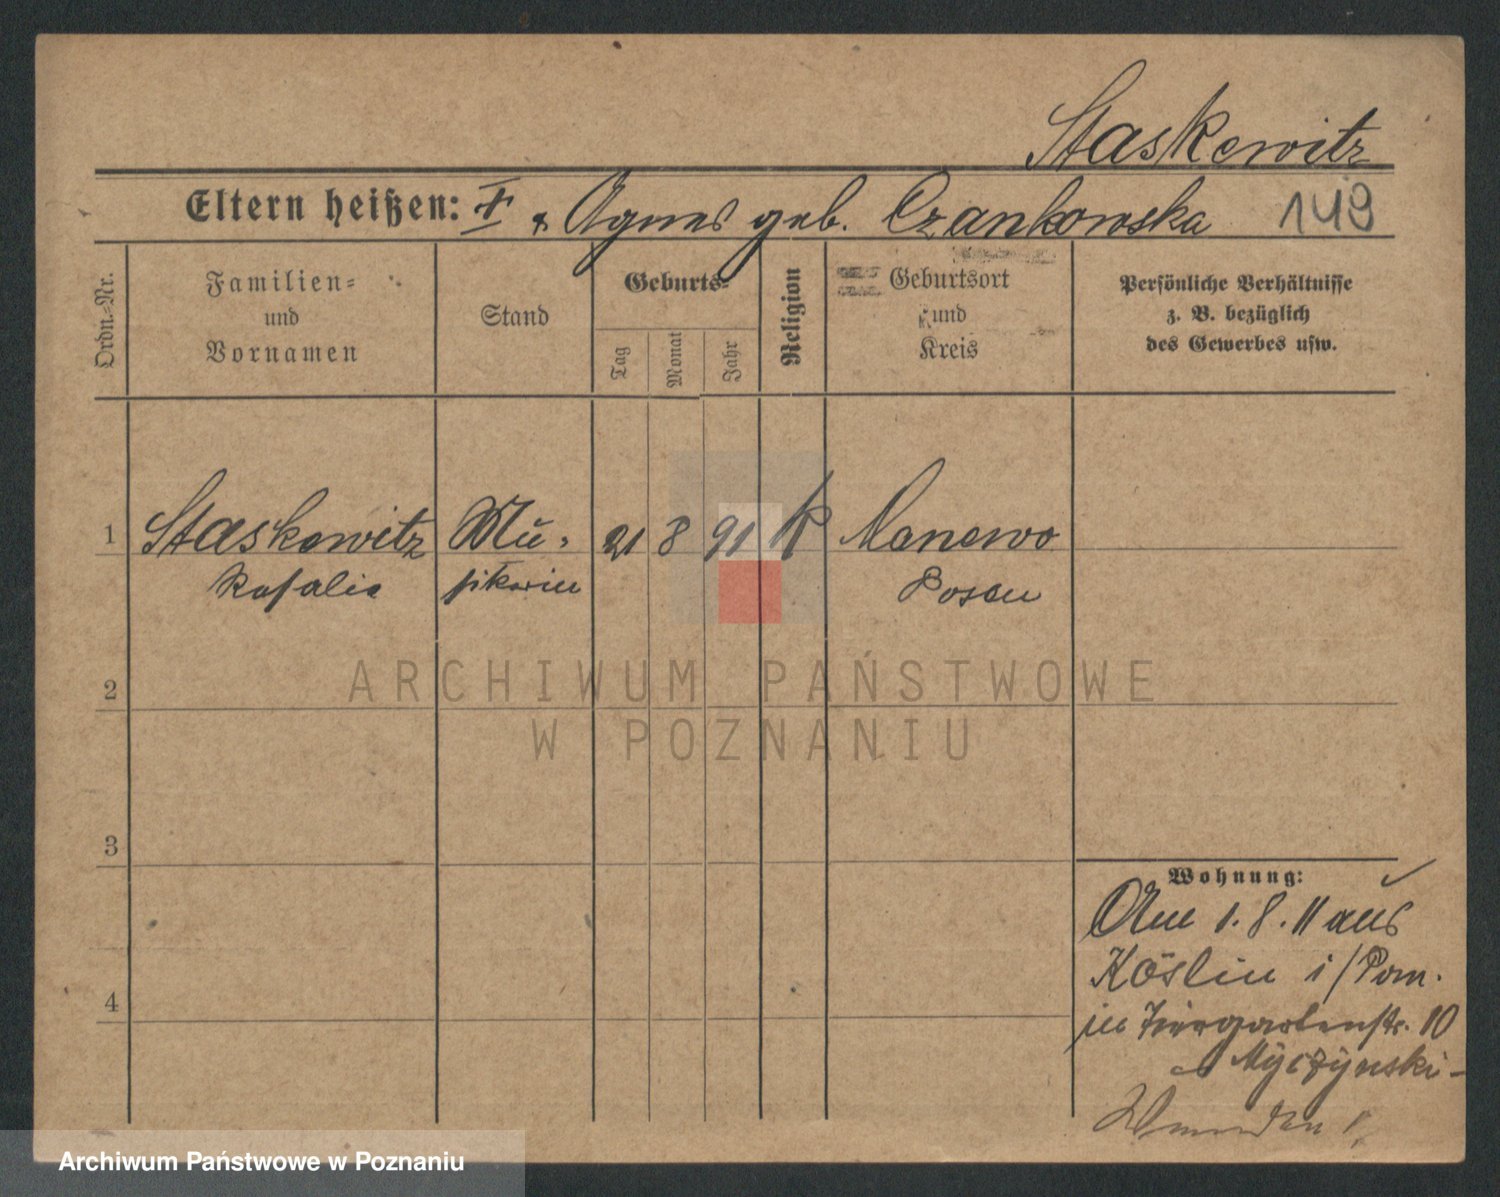 Staskewitz
Eltern heißen: ✝ & Agnes geb. Czankowska 149
Ordn.-Nr.
Familien-
und
Vornamen
Stand
Geburts-
Tag
Monat
Jahr
Religion
Geburtsort
und
Kreis
Persönliche Verhältnisse
z. B. bezüglich
des Gewerbes usw.
1 Staskewitz Mu- 21 8 91 K Manewo
Rosalie sikerin Posen
2
3
4
Wohnung:
Am 1.8.11 aus
Köslin i/Pom.
in Tiergartenstr. 10
Myczynski-
ARCHIWUM PAŃSTWOWE
W POZNANIU
Archiwum Państwowe w Poznaniu